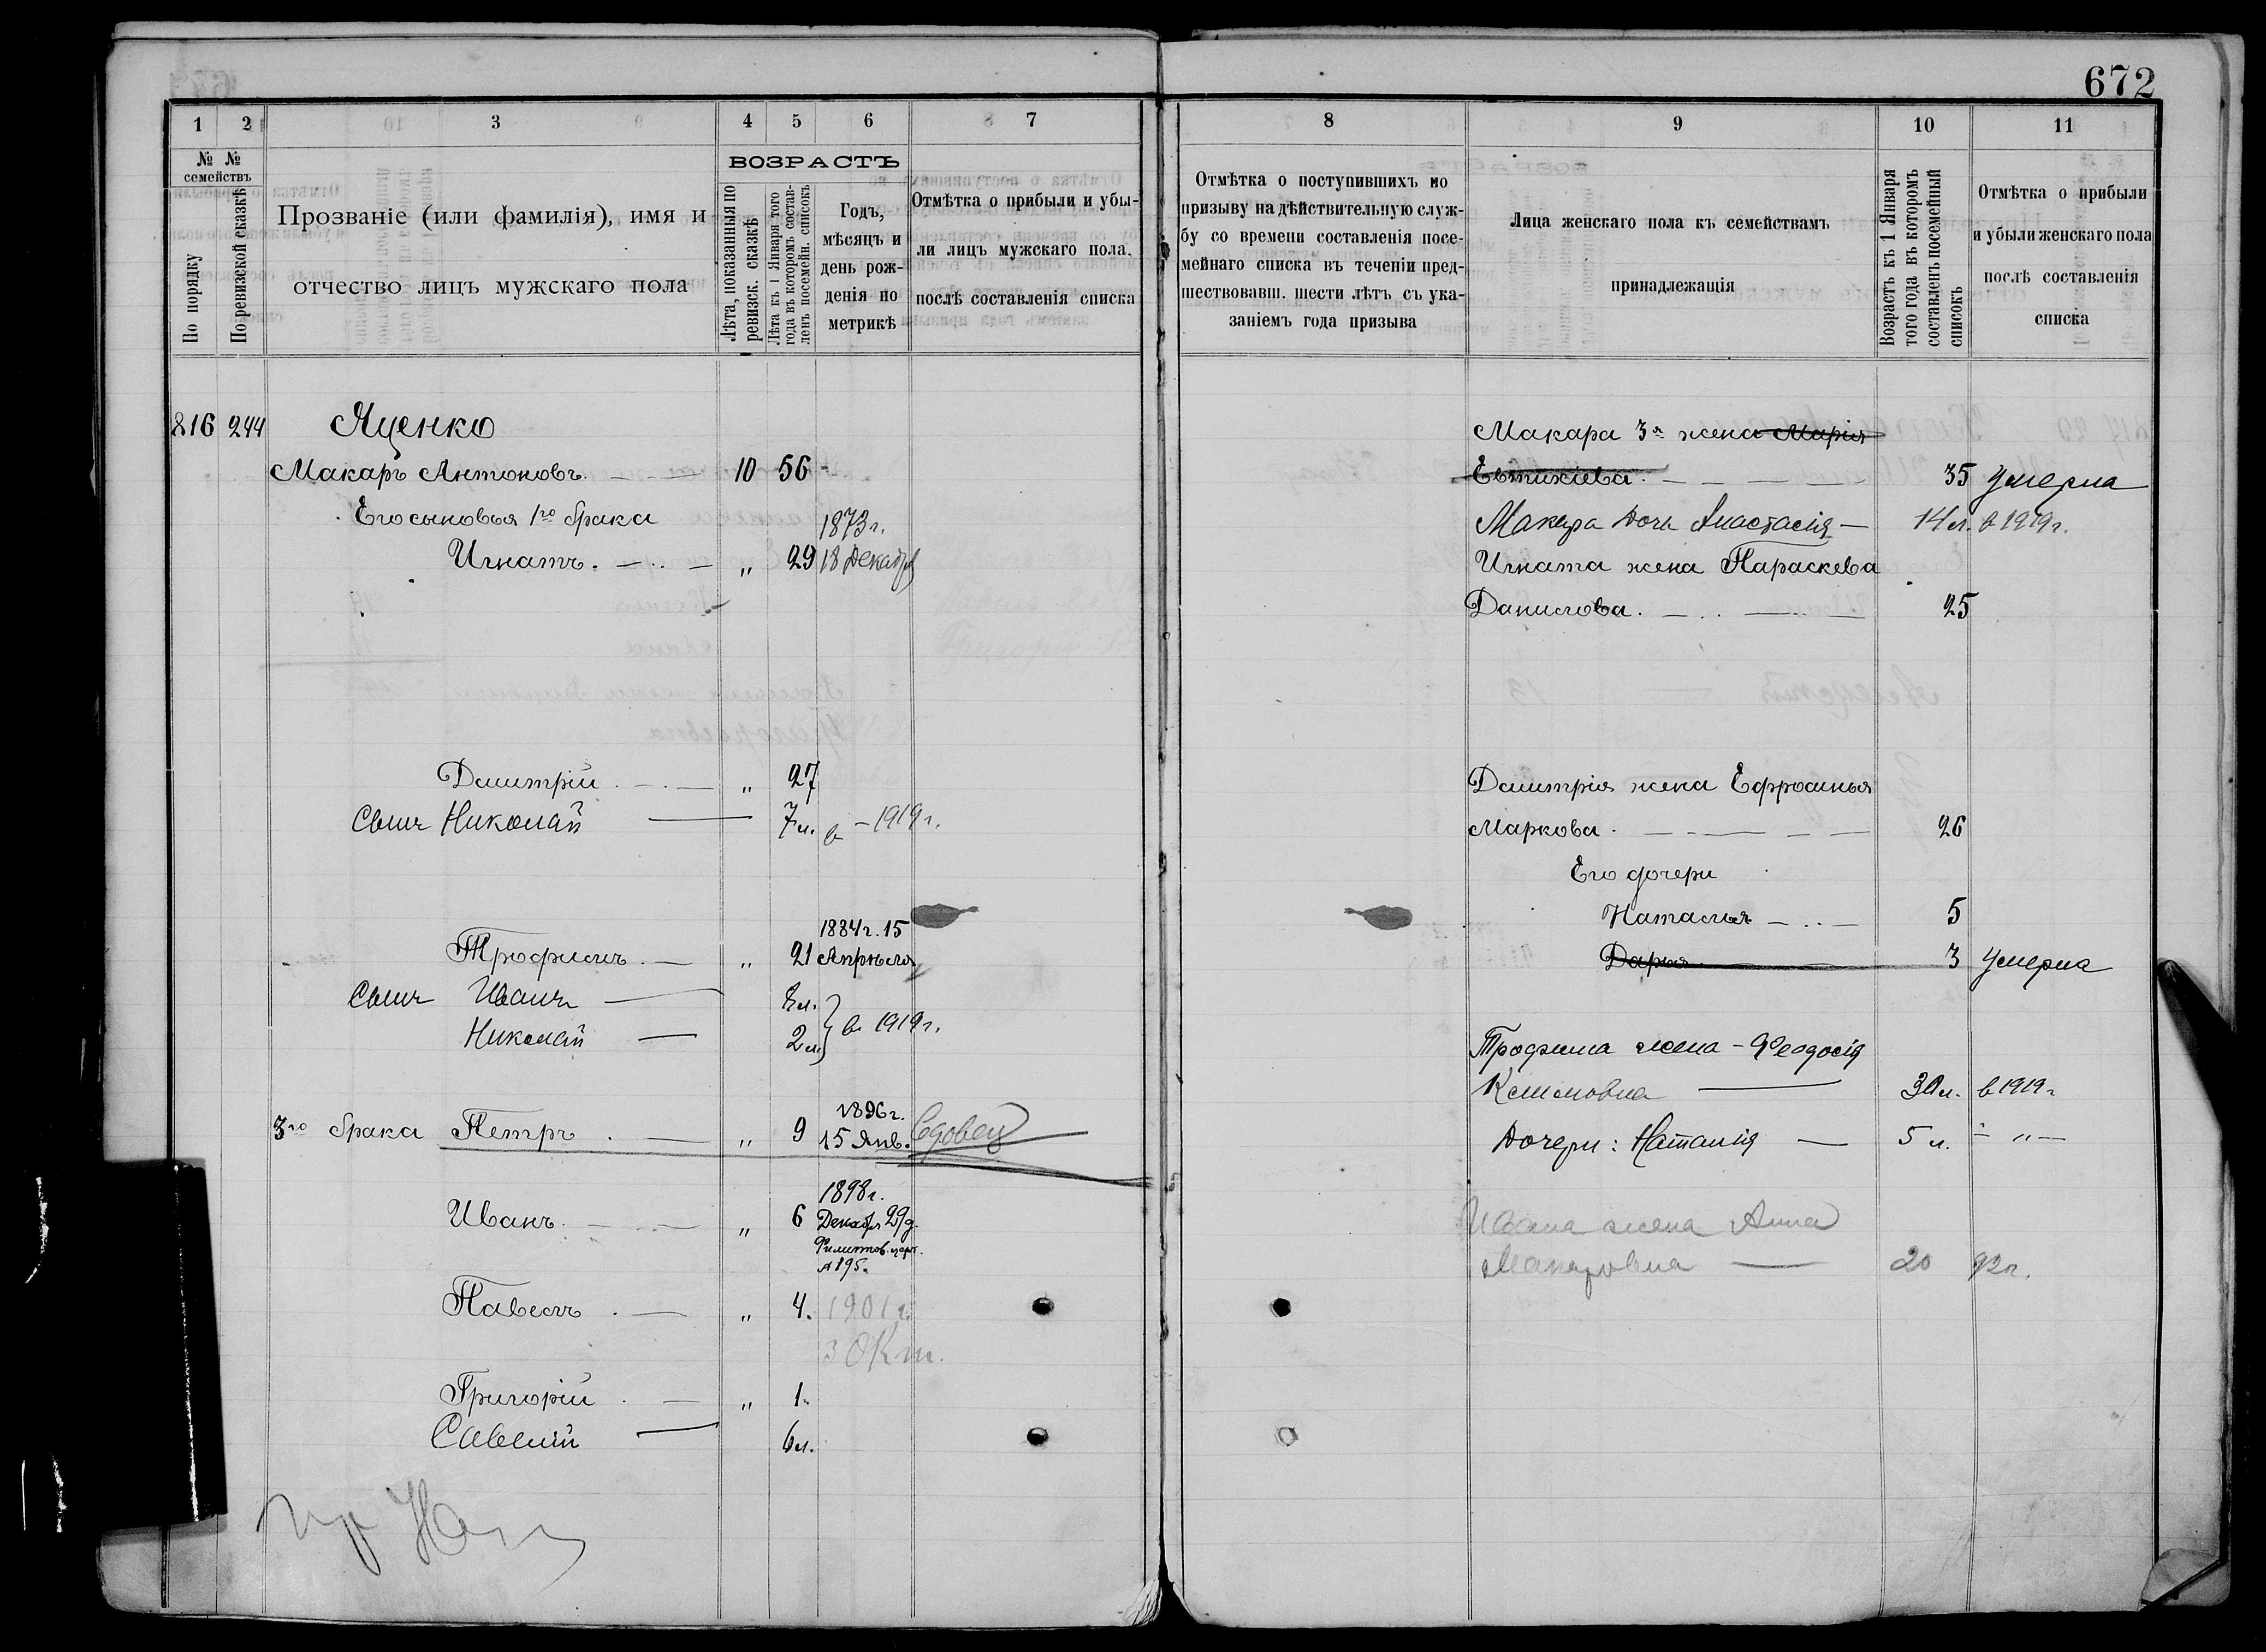 672
1 2 3 4 5 6 7
№ № семействъ
По порядку
По ревизской сказкѣ
Прозваніе (или фамилія), имя и
отчество лицъ мужскаго пола
ВОЗРАСТЪ
Лѣта, показанныя по
ревизск. сказкѣ
Лѣта къ 1 Января того
года въ которомъ состав-
ленъ посемейн. списокъ
Годъ,
мѣсяцъ и
день рож-
денія по
метрикѣ
Отмѣтка о прибыли и убы-
ли лицъ мужскаго пола,
послѣ составленія списка
816 244 Яценко
Макаръ Антоновъ. 10 56
Его сыновья 1го брака
1873 г.
Игнатъ. „ 29 18 Декабр
Дмитрій „ 27
Сынъ Николай 7 л. в – 1919 г.
1884 г. 15
Трофимъ „ 21 Апрѣля
Сынъ Иванъ 8 л.
Николай 2 л. } в 1919 г.
1896 г.
3го брака Петръ „ 9 15 Янв. Вдовец
1898 г.
Иванъ „ 6 Декабря 29 д.
№ 895.
Павелъ „ 4. 1901 г.
3 Окт.
Григорій „ 1.
Савелій 6 л.
8 9 10 11
Отмѣтка о поступившихъ по
призыву на дѣйствительную служ-
бу со времени составленія посе-
мейнаго списка въ теченіи пред-
шествовавш. шести лѣтъ съ ука-
заніемъ года призыва
Лица женскаго пола къ семействамъ
принадлежащія
Возрастъ къ 1 Января
того года въ которомъ
составленъ посемейный
списокъ
Отмѣтка о прибыли
и убыли женскаго пола
послѣ составленія
списка
Макара 3я жена Марія
Евтихіева. 35 Умерла
Макара Дочь Анастасія – 14 л. в 1919 г.
Игната жена Параскева
Данилова. 25
Дмитрія жена Ефросинья
Маркова. 26
Его дочери
Наталья 5
Дарья 3 Умерла
Трофима жена – Феодосія
Климовна 30 л. в 1919 г
Дочери: Наталія — 5 л. – „ –
Ивана жена Анна
Макаровна 20 92 г.